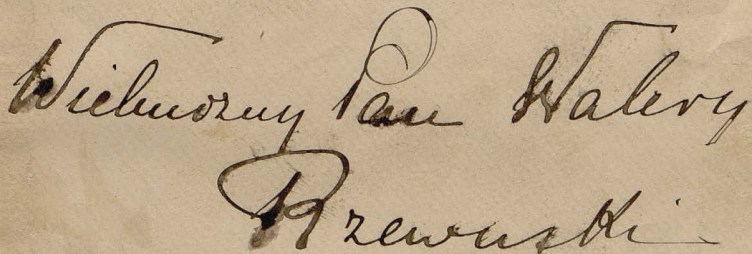 Wielmożny Pan Walery
Rzewuski